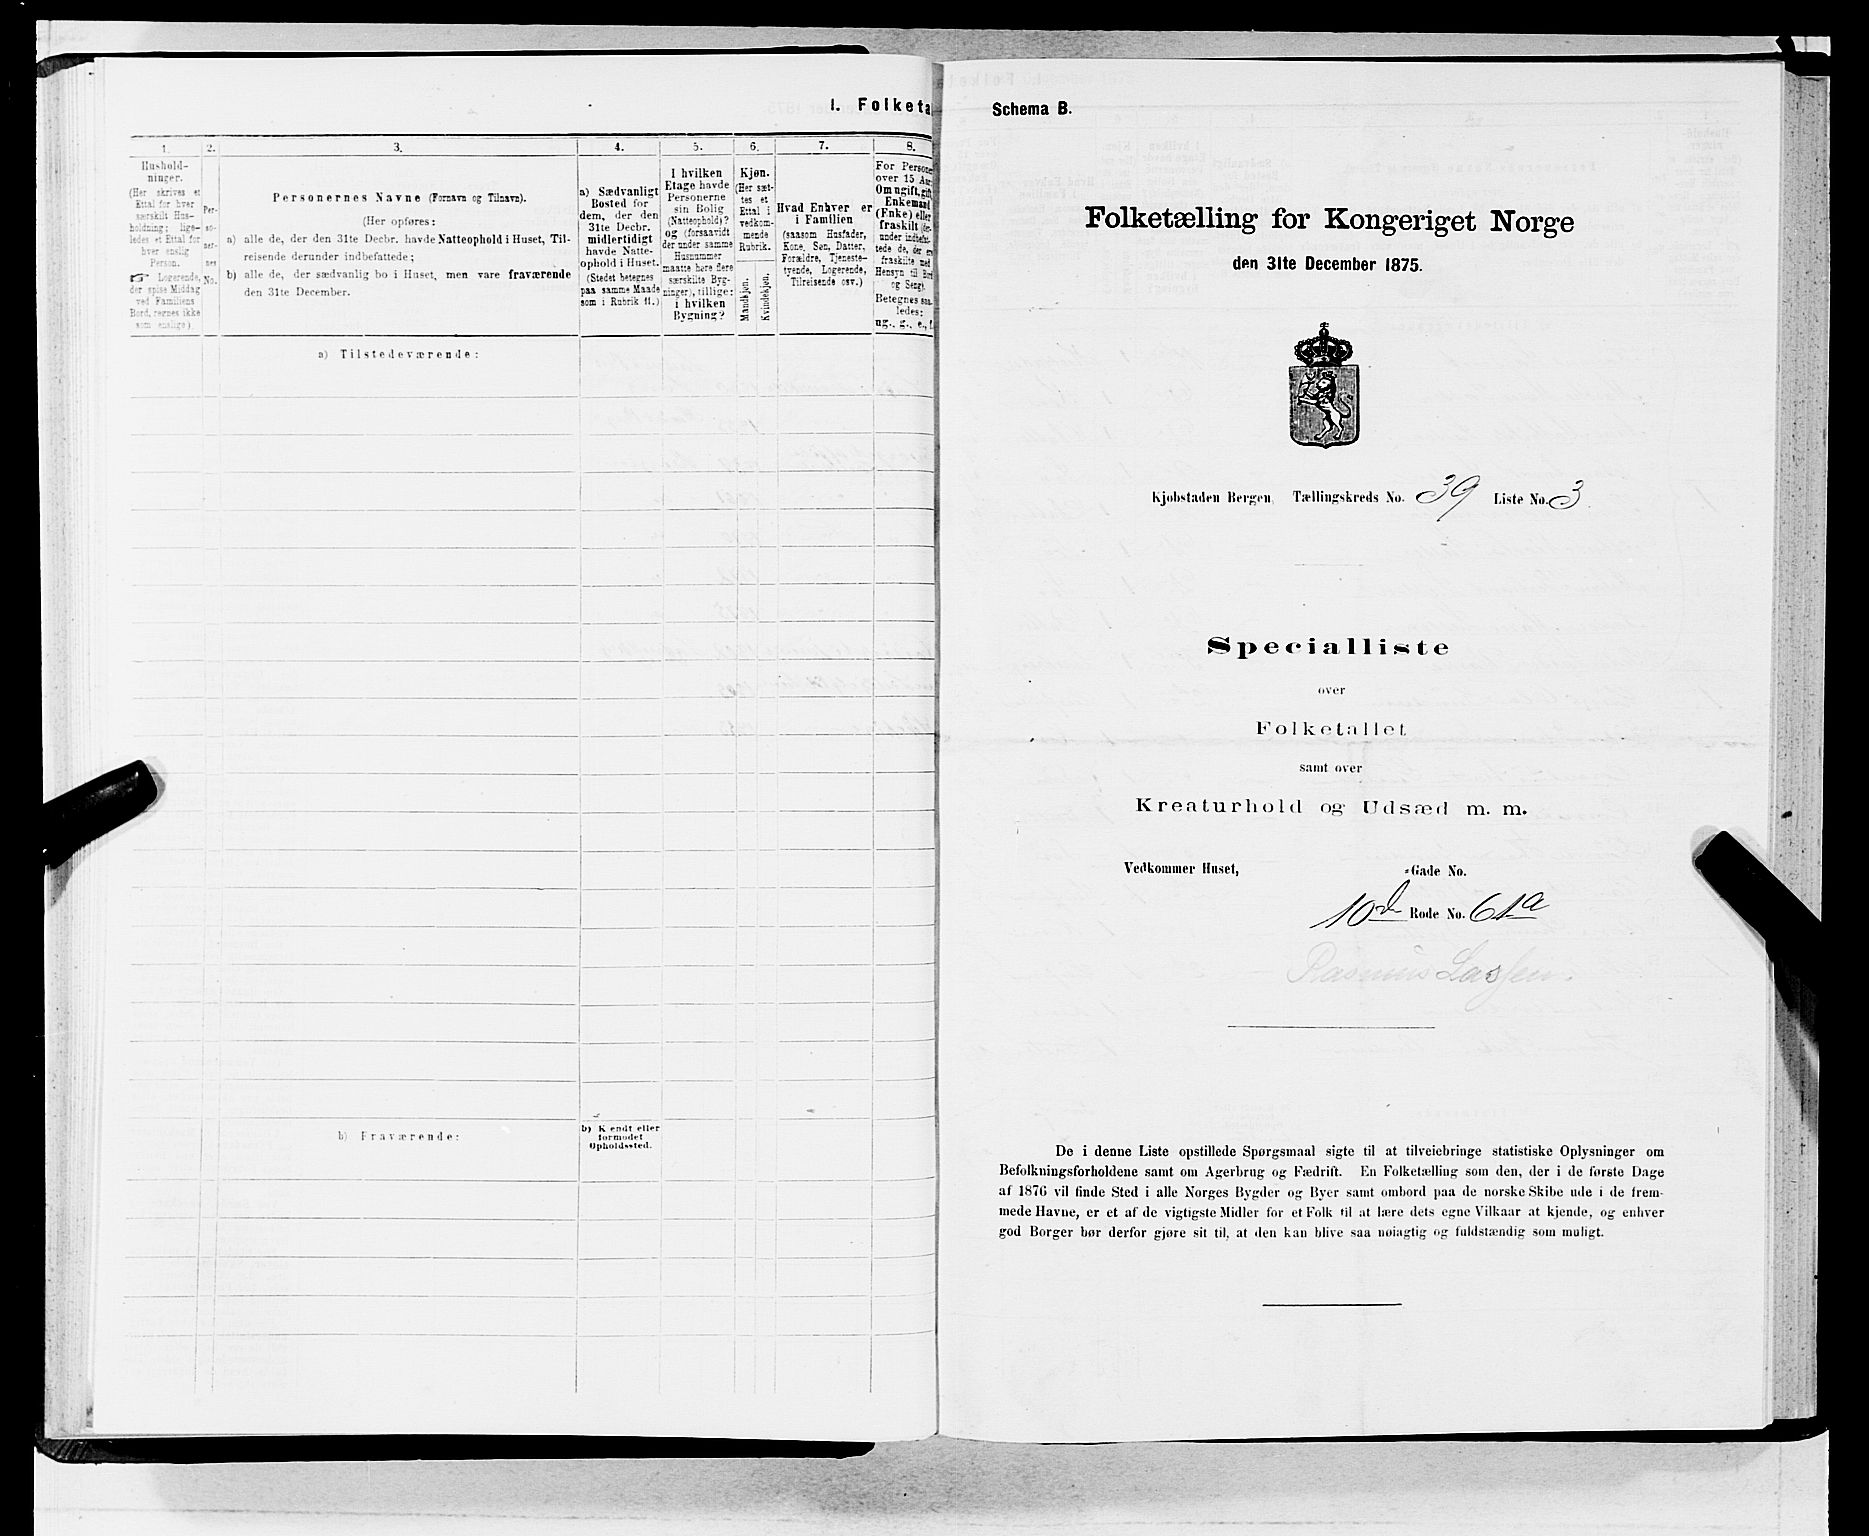 I. Folketa
1.
Hushold-
ninger.
(Her skrives et
Ettal for hver
særskilt Hus-
holdning; lige-
ledes et Ettal for
hver enslig
Person.
☞ Logerende,
der spise Middag
ved Familiens
Bord, regnes ikke
som enslige).
2.
Per-
so-
ner-
nes
No.
3.
Personernes Navne (Fornavn og Tilnavn).
(Her opføres:
a) alle de, der den 31te Decbr. havde Natteophold i Huset, Til-
reisende derunder indbefattede;
b) alle de, der sædvanlig bo i Huset, men vare fraværende
den 31te December.
4.
a) Sædvanligt
Bosted for
dem, der den
31te Decbr.
midlertidigt
havde Natte-
ophold i Huset.
(Stedet betegnes
paa samme Maade
som i Rubrik 11.)
5.
I hvilken
Etage havde
Personerne
sin Bolig
(Natteophold)?
og (forsaavidt
der under samme
Husnummer
maatte høre flere
særskilte Byg-
ninger), tillige:
i hvilken
Bygning?
6.
Kjøn.
(Her sæt-
tes et
Ettal i
vedkom-
mende
Rubrik.
Mandkjøn.
Kvindekjøn.
7.
Hvad Enhver er
i Familien
(saasom Husfader,
Kone, Søn, Datter,
Forældre, Tjeneste-
tyende, Logerende,
Tilreisende osv.)
8.
For Persone
over 15 Aar:
Om ugift, gift,
Enkemand
(Enke) eller
fraskilt (der-
under indbefat-
tede de, der ere
fraskilte med
Hensyn til Bord
og Seng).
Betegnes saa-
ledes:
ug., g., e., f.
a) Tilstedeværende:
b) Fraværende:
b) Kjendt eller
formodet
Opholdssted.
Schema B.
Folketælling for Kongeriget Norge
den 31te December 1875.
Kjøbstaden Bergen. Tællingskreds No. 39 Liste No. 3
Specialliste
over
Folketallet
samt over
Kreaturhold og Udsæd m. m.
Vedkommer Huset, -Gade No.
10d Rode No. 61a
Rasmus Lassen.
De i denne Liste opstillede Spørgsmaal sigte til at tilveiebringe statistiske Oplysninger om
Befolkningsforholdene samt om Agerbrug og Fædrift. En Folketælling som den, der i de første Dage
af 1876 vil finde Sted i alle Norges Bygder og Byer samt ombord paa de norske Skibe ude i de frem-
mede Havne, er et af de vigtigste Midler for et Folk til at lære dets egne Vilkaar at kjende, og enhver
god Borger bør derfor gjøre sit til, at den kan blive saa nøiagtig og fuldstændig som muligt.